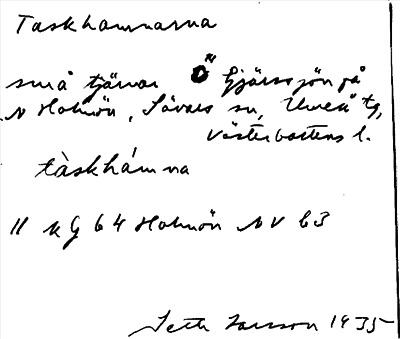 Taskhamnarna
små tjärnar Ö Gjärssjön på
N Holmön, Sävars sn, Umeå tg,
Västerbottens l.
tàskhámna
11 K G 64 Holmön NV 63
Seth Jansson 1935